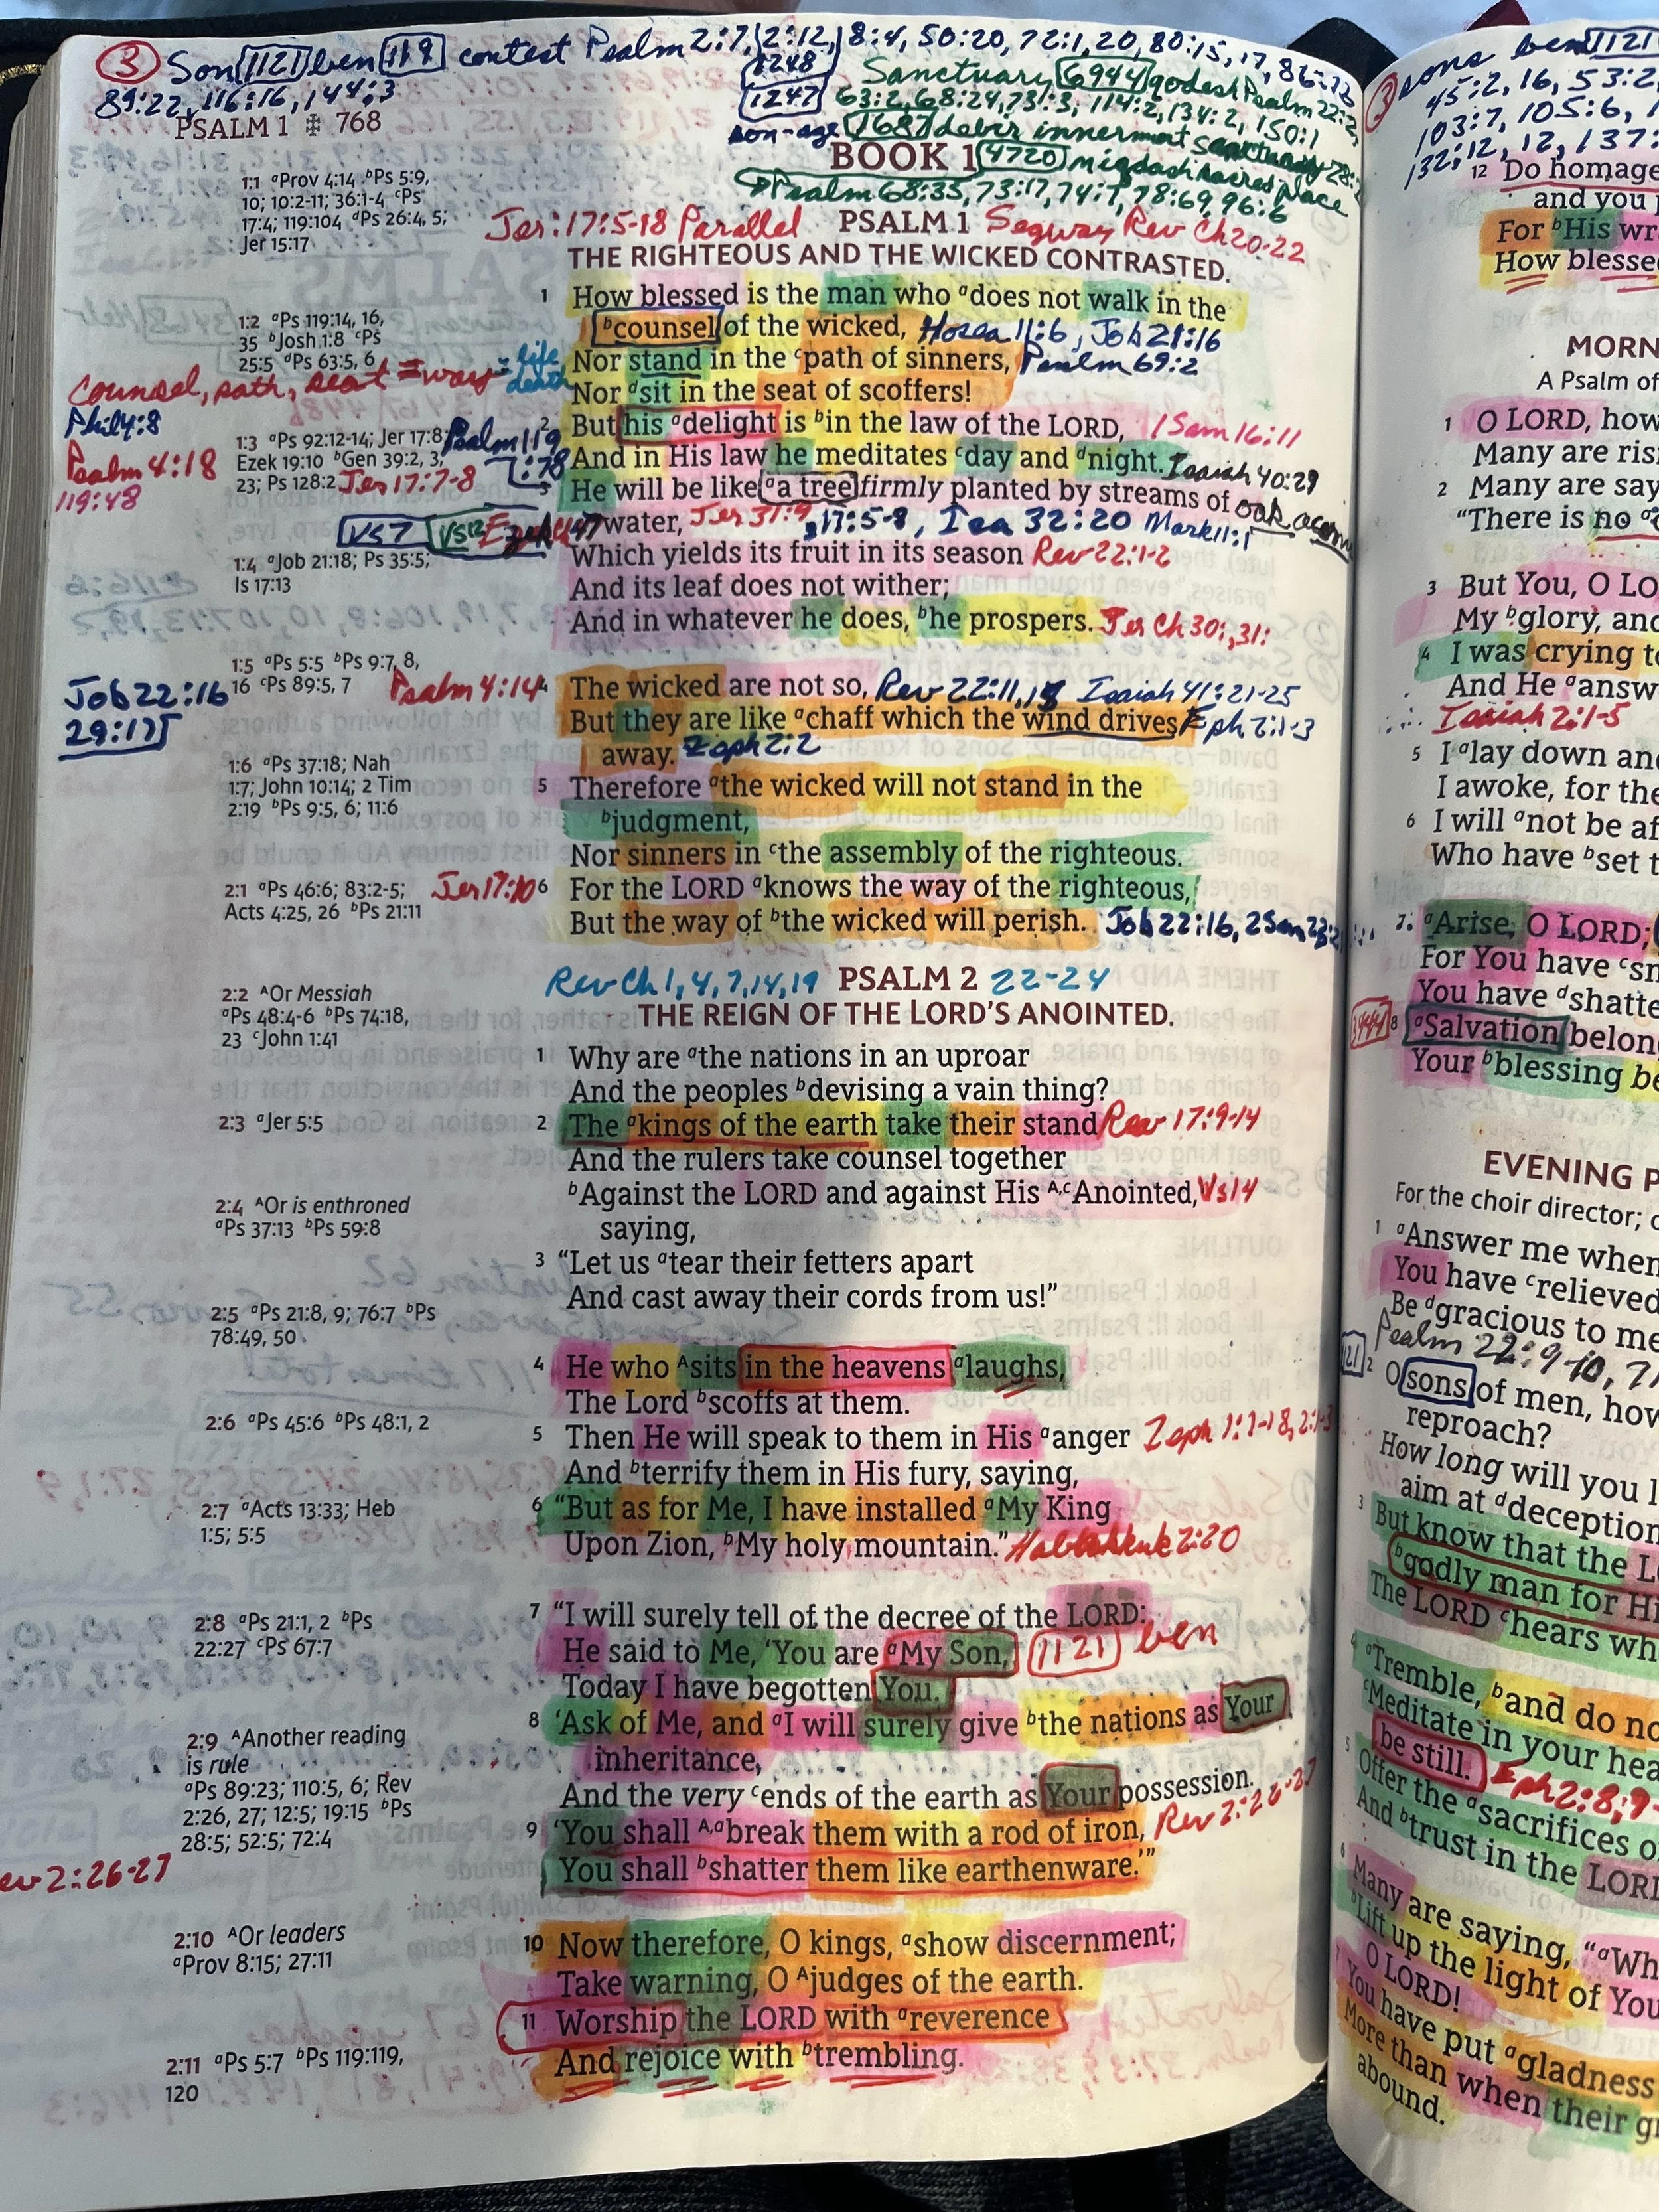 ③ Son 1121 ben 119 contest Psalm 2:7, 2:12, 8:4, 50:20, 72:1, 20, 80:15, 17, 86:16
89:22, 116:16, 144:3
1248
1247
son-age
Sanctuary 6944 qodesh Psalm 22:2,
63:2, 68:24, 73:3, 114:2, 134:2, 150:1
1687 debir innermost sanctuary 28:2
PSALM 1 ✠ 768
BOOK 1 4720 miqdash sacred place
Psalm 68:35, 73:17, 74:7, 78:69, 96:6
Jer: 17:5-18 Parallel PSALM 1 Segway Rev Ch 20-22
THE RIGHTEOUS AND THE WICKED CONTRASTED.
1 How blessed is the man who ᵃdoes not walk in the
ᵇcounsel of the wicked, Hosea 11:6, Job 21:16
Nor stand in the ᶜpath of sinners, Psalm 69:2
Nor ᵈsit in the seat of scoffers!
2 But his ᵃdelight is ᵇin the law of the LORD, 1 Sam 16:11
And in His law he meditates ᶜday and ᵈnight. Isaiah 40:29
3 He will be like ᵃa tree firmly planted by streams of oak acorn
water, Jer 31:9, 17:5-8, Isa 32:20 Mark 11:1
Which yields its fruit in its season Rev 22:1-2
And its leaf does not wither;
And in whatever he does, ᵇhe prospers. Jer Ch 30:, 31:
Psalm 4:14
4 The wicked are not so, Rev 22:11, 15 Isaiah 41:21-25
But they are like ᵃchaff which the wind drives Eph 2:1-3
away. Zeph 2:2
5 Therefore ᵃthe wicked will not stand in the
ᵇjudgment,
Nor sinners in ᶜthe assembly of the righteous.
Jer 17:10 6 For the LORD ᵃknows the way of the righteous,
But the way of ᵇthe wicked will perish. Job 22:16, 2 Sam
Rev Ch 1, 4, 7, 14, 19 PSALM 2 22-24
THE REIGN OF THE LORD'S ANOINTED.
1 Why are ᵃthe nations in an uproar
And the peoples ᵇdevising a vain thing?
2 The ᵃkings of the earth take their stand Rev 17:9-14
And the rulers take counsel together
ᵇAgainst the LORD and against His ᴬ,ᶜAnointed, Vs 14
saying,
3 “Let us ᵃtear their fetters apart
And cast away their cords from us!”
4 He who ᴬsits in the heavens ᵃlaughs,
The Lord ᵇscoffs at them.
5 Then He will speak to them in His ᵃanger Zeph 1:1-18, 2:1-3
And ᵇterrify them in His fury, saying,
6 “But as for Me, I have installed ᵃMy King
Upon Zion, ᵇMy holy mountain.” Habbakkuk 2:20
7 “I will surely tell of the decree of the LORD:
He said to Me, ‘You are ᵃMy Son, 1121 ben
Today I have begotten You.
8 ‘Ask of Me, and ᵃI will surely give ᵇthe nations as Your
inheritance,
And the very ᶜends of the earth as Your possession.
9 ‘You shall ᴬ,ᵃbreak them with a rod of iron, Rev 2:26-27
You shall ᵇshatter them like earthenware.’”
10 Now therefore, O kings, ᵃshow discernment;
Take warning, O ᴬjudges of the earth.
11 Worship the LORD with ᵃreverence
And rejoice with ᵇtrembling.
1:1 ᵃProv 4:14 ᵇPs 5:9,
10; 10:2-11; 36:1-4 ᶜPs
17:4; 119:104 ᵈPs 26:4, 5;
Jer 15:17
1:2 ᵃPs 119:14, 16,
35 ᵇJosh 1:8 ᶜPs
25:5 ᵈPs 63:5, 6
Counsel, path, seat = way = life
death
Phil 4:8
Psalm 4:18
119:48
1:3 ᵃPs 92:12-14; Jer 17:8;
Ezek 19:10 ᵇGen 39:2, 3,
23; Ps 128:2 Jer 17:7-8
Psalm 119
:78
Vs 7 Vs 12 Ezek 47
1:4 ᵃJob 21:18; Ps 35:5;
Is 17:13
1:5 ᵃPs 5:5 ᵇPs 9:7, 8,
16 ᶜPs 89:5, 7
Job 22:16
29:17
1:6 ᵃPs 37:18; Nah
1:7; John 10:14; 2 Tim
2:19 ᵇPs 9:5, 6; 11:6
2:1 ᵃPs 46:6; 83:2-5;
Acts 4:25, 26 ᵇPs 21:11
2:2 ᴬOr Messiah
ᵃPs 48:4-6 ᵇPs 74:18,
23 ᶜJohn 1:41
2:3 ᵃJer 5:5
2:4 ᴬOr is enthroned
ᵃPs 37:13 ᵇPs 59:8
2:5 ᵃPs 21:8, 9; 76:7 ᵇPs
78:49, 50
2:6 ᵃPs 45:6 ᵇPs 48:1, 2
2:7 ᵃActs 13:33; Heb
1:5; 5:5
2:8 ᵃPs 21:1, 2 ᵇPs
22:27 ᶜPs 67:7
2:9 ᴬAnother reading
is rule
ᵃPs 89:23; 110:5, 6; Rev
2:26, 27; 12:5; 19:15 ᵇPs
28:5; 52:5; 72:4
ev 2:26-27
2:10 ᴬOr leaders
ᵃProv 8:15; 27:11
2:11 ᵃPs 5:7 ᵇPs 119:119,
120
③ sons ben 1121
45:2, 16, 53:2
103:7, 105:6, 1
132:12, 12, 137:
12 Do homage
and you
For ᵇHis wr
How blesse
MORN
A Psalm of
1 O LORD, how
Many are ris
2 Many are say
“There is no
3 But You, O LO
My ᵇglory, and
4 I was crying t
And He ᵃansw
Isaiah 2:1-5
5 I ᵃlay down an
I awoke, for the
6 I will ᵃnot be af
Who have ᵇset t
7 ᵃArise, O LORD;
For You have ᶜsm
You have ᵈshatte
3444 8 ᵃSalvation belon
Your ᵇblessing be
EVENING P
For the choir director;
1 ᵃAnswer me when
You have ᶜrelieved
Be ᵈgracious to me
Psalm 22:9-10, 7
2 O sons of men, how
reproach?
How long will you l
aim at ᵈdeception
3 But know that the L
ᵇgodly man for Hi
The LORD ᶜhears wh
4 ᵃTremble, ᵇand do no
ᶜMeditate in your hea
be still. Eph 2:8, 9
5 Offer the ᵃsacrifices o
And ᵇtrust in the LORD
6 Many are saying, “ᵃWh
ᵇLift up the light of You
O LORD!
7 You have put ᵃgladness
More than when their g
abound.